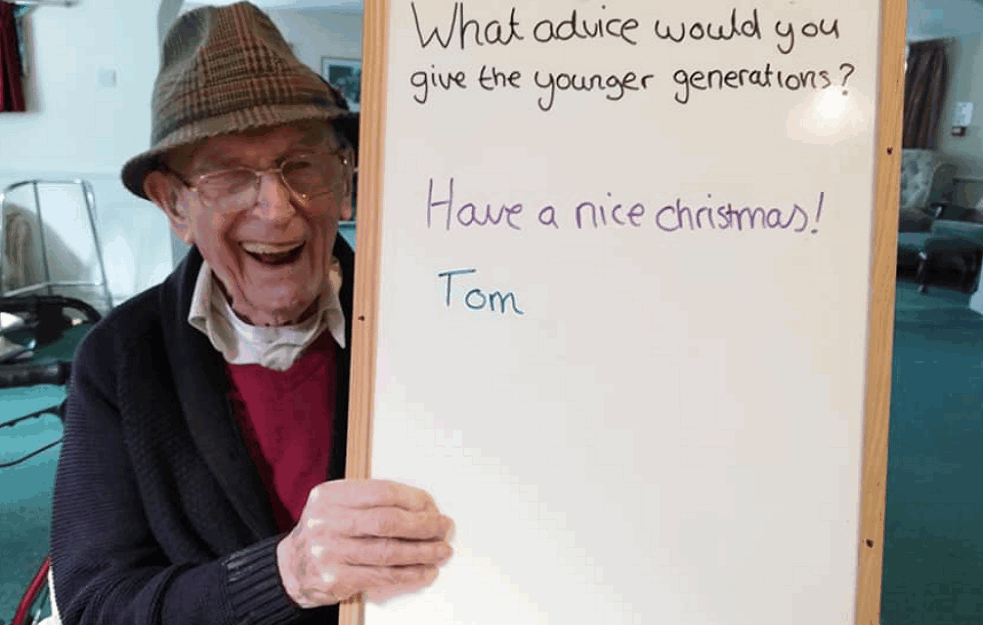 What advice would you
give the younger generations?
Have a nice christmas!
Tom